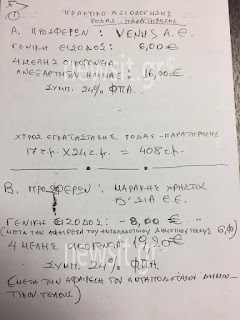 ①
ΠΡΑΚΤΙΚΟ ΑΞΙΟΛΟΓΗΣΗΣ
ΡΟΔΑΣ - ΠΑΡΑΤΗΡΗΣΗΣ
Α. ΠΡΟΣΦΕΡΩΝ: VENUS A.E.
ΓΕΝΙΚΗ ΕΙΣΟΔΟΣ: 6,00 €
4 ΜΕΛΗΣ ΟΙΚΟΓΕΝΕΙΑ
ΑΝΕΞΑΡΤΗΤΟΥ ΗΛΙΚΙΑΣ: 16,00 €
ΣΥΜΠ. 24% ΦΠΑ.
ΧΩΡΟΣ ΕΓΚΑΤΑΣΤΑΣΗΣ ΡΟΔΑΣ - ΠΑΡΑΤΗΡΗΣΗΣ
17 τ.μ. Χ 24 τ.μ. = 408 τ.μ.
Β. ΠΡΟΣΦΕΡΩΝ: ΜΑΡΑΚΗΣ ΧΡΗΣΤΟΣ
Β' ΣΙΑ Ε.Ε.
ΓΕΝΙΚΗ ΕΙΣΟΔΟΣ: - 8,00 €
(ΜΕΤΑ ΤΗΝ ΑΦΑΙΡΕΣΗ ΤΟΥ ΑΝΤΑΠΟΔΟΤΙΚΟΥ ΔΗΜΟΤΙΚΟΥ ΤΕΛΟΥΣ
4 ΜΕΛΗΣ ΟΙΚΟΓΕΝΕΙΑ: 19,20 €
ΣΥΜΠ. 24% ΦΠΑ.
(ΜΕΤΑ ΤΗΝ ΑΦΑΙΡΕΣΗ ΤΟΥ ΑΝΤΑΠΟΔΟΤΙΚΟΥ ΔΗΜΟ-
ΤΙΚΟΥ ΤΕΛΟΥΣ)
newsit.gr
newsit.gr